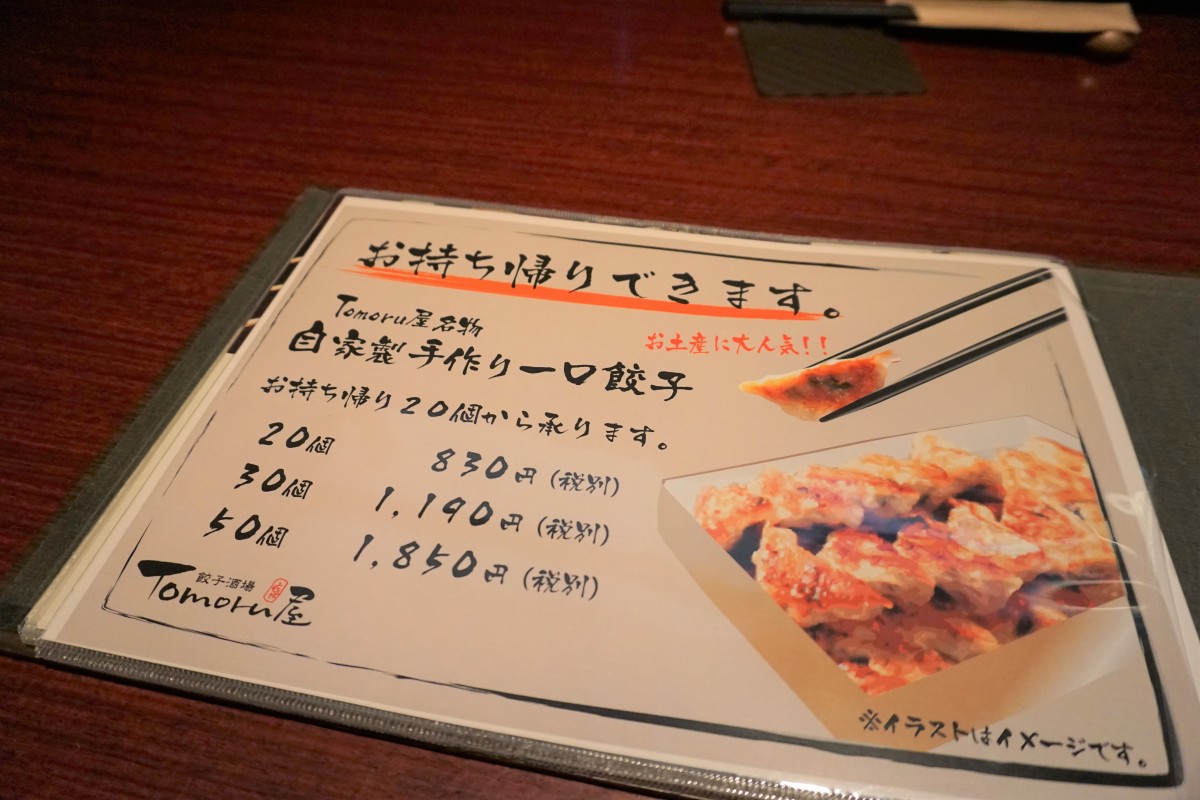 お持ち帰りできます。
お土産に大人気!!
Tomoru屋名物
自家製手作り一口餃子
お持ち帰り20個から承ります。
20個 830円(税別)
30個 1,190円(税別)
50個 1,850円(税別)
餃子酒場
Tomoru屋
※イラストはイメージです。